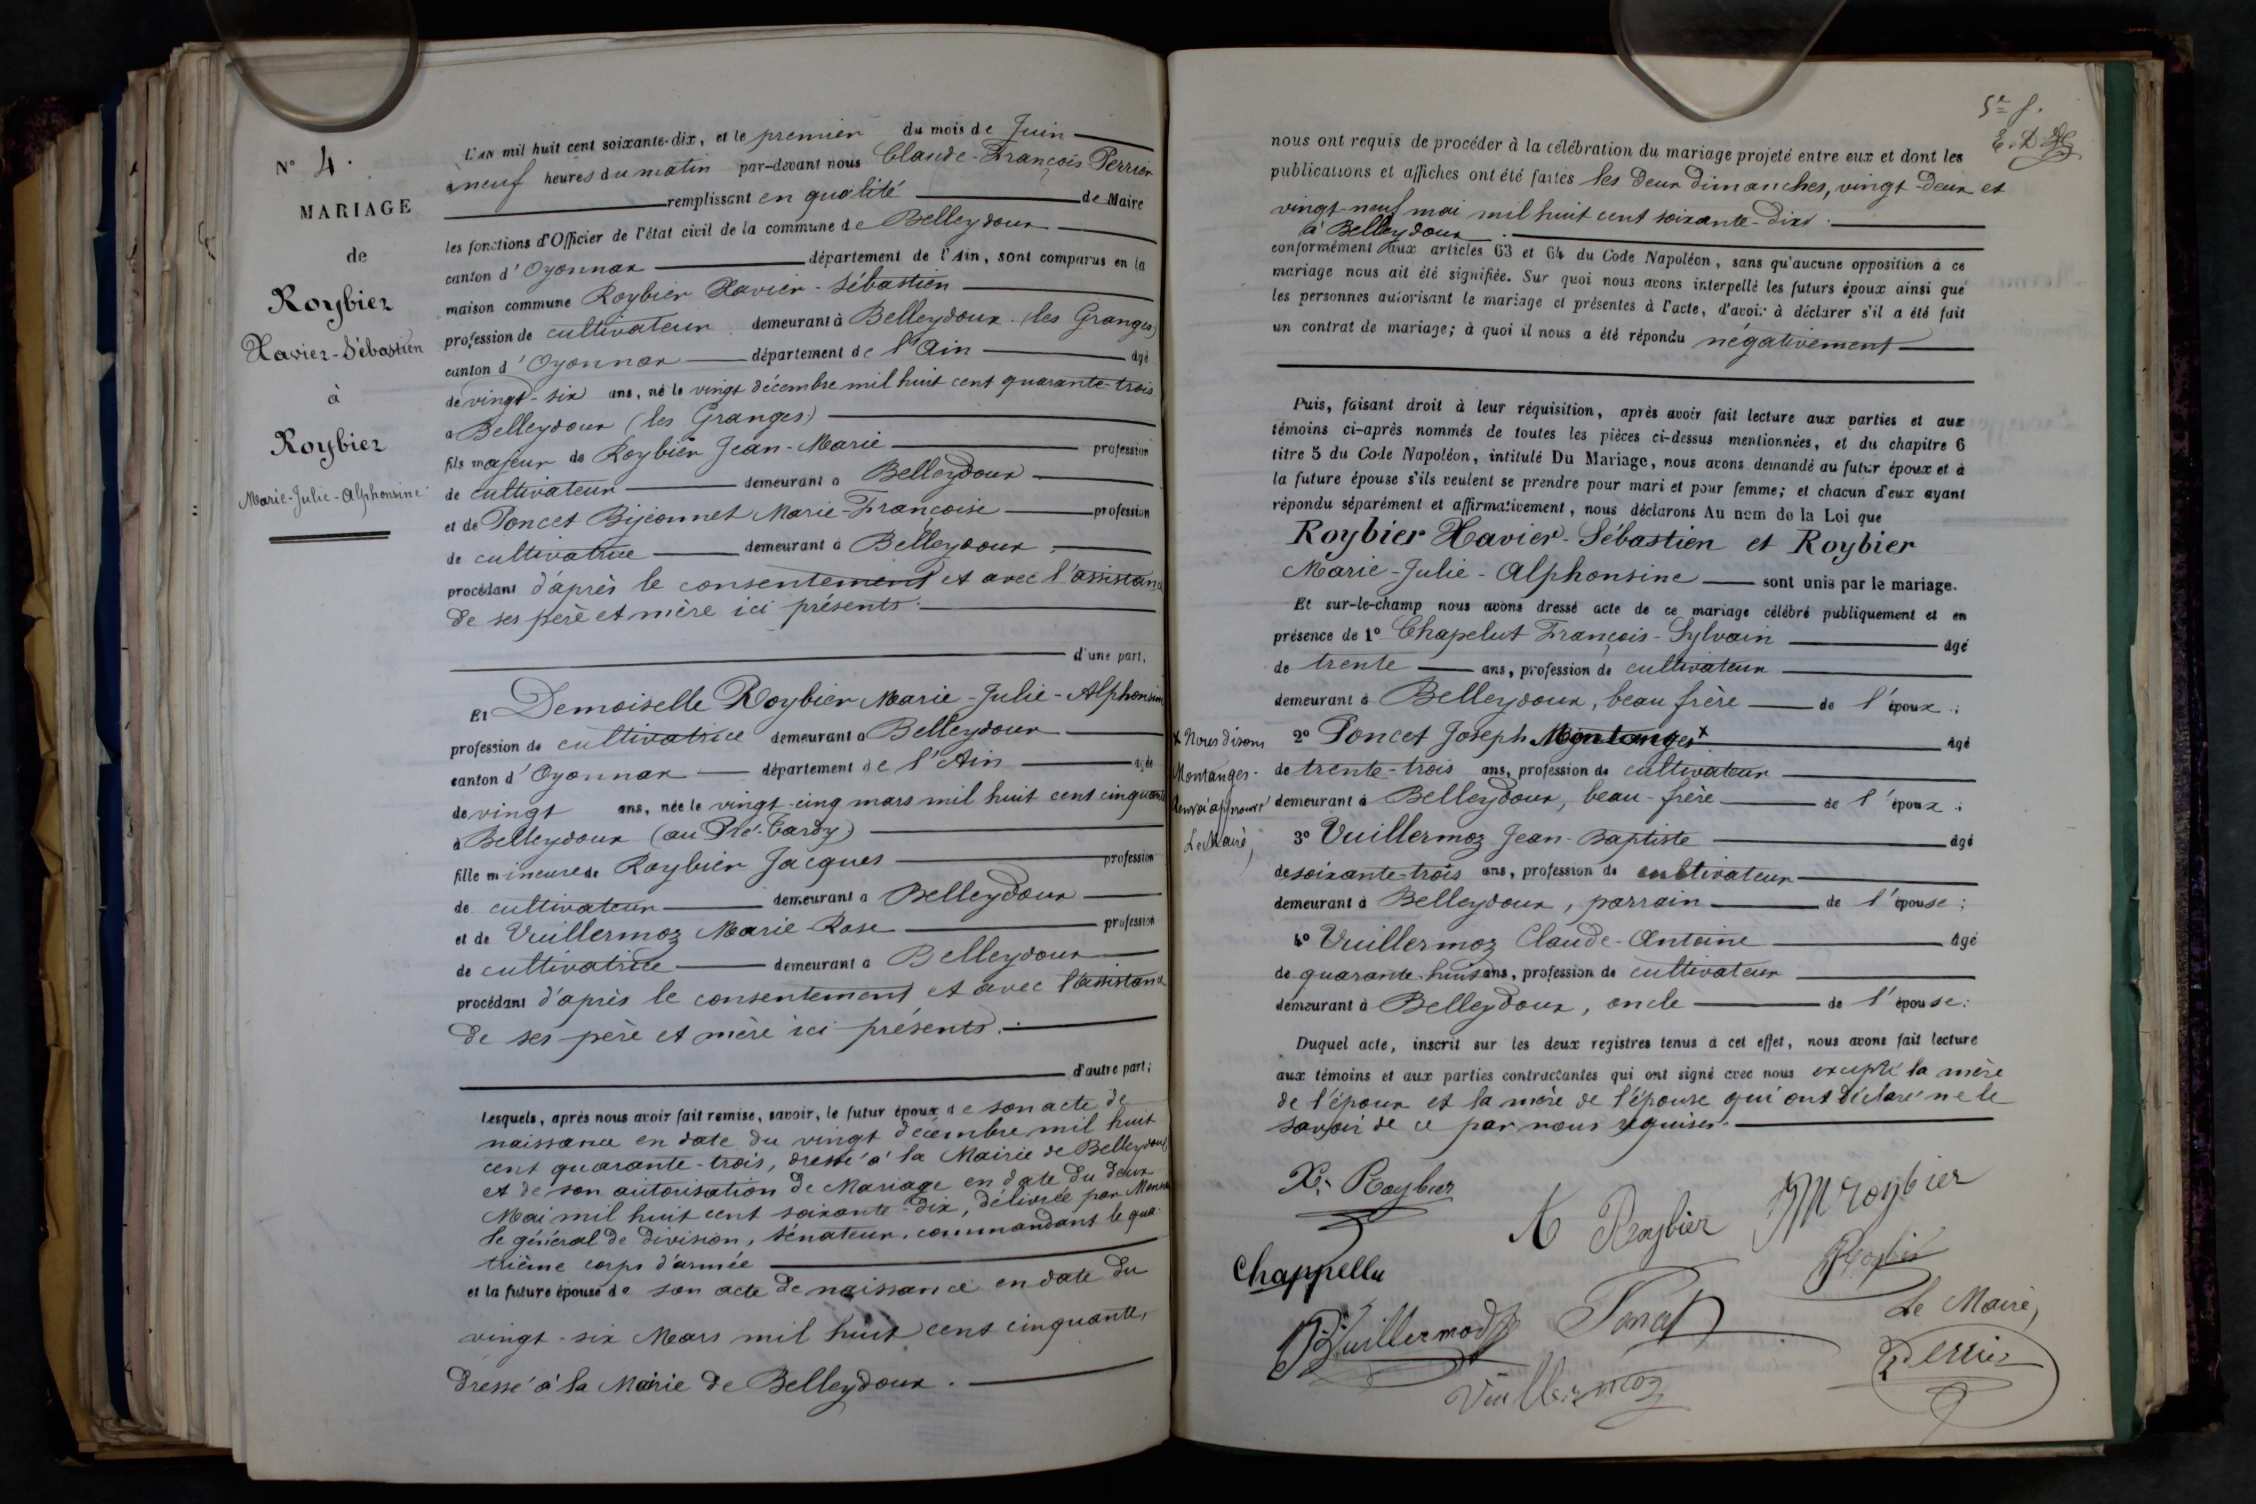 N° 4.
MARIAGE
de
Roybier
Xavier-Sébastien
à
Roybier
Marie-Julie-Alphonsine
L'AN mil huit cent soixante-dix, et le premier du mois de Juin
à neuf heures du matin par-devant nous Claude-François Perrier
remplissant en qualité de Maire
les fonctions d'Officier de l'état civil de la commune de Belleydoux
canton d'Oyonnax département de l'Ain, sont comparus en la
maison commune Roybier Xavier-Sébastien
profession de cultivateur demeurant à Belleydoux (les Granges)
canton d'Oyonnax département de l'Ain âgé
de vingt-six ans, né le vingt décembre mil huit cent quarante-trois
à Belleydoux (les Granges)
fils majeur de Roybier Jean-Marie profession
de cultivateur demeurant à Belleydoux
et de Poncet Bijeonnet Marie-Françoise profession
de cultivatrice demeurant à Belleydoux
procédant d'après le consentement et avec l'assistance
de ses père et mère ici présents.
d'une part,
Et Demoiselle Roybier Marie-Julie-Alphonsine
profession de cultivatrice demeurant à Belleydoux
canton d'Oyonnax département de l'Ain âgée
de vingt ans, née le vingt-cinq mars mil huit cent cinquante
à Belleydoux (au Pré-Tardy)
fille mineure de Roybier Jacques profession
de cultivateur demeurant à Belleydoux
et de Vuillermoz Marie-Rose profession
de cultivatrice demeurant à Belleydoux
procédant d'après le consentement et avec l'assistance
de ses père et mère ici présents.
d'autre part;
Lesquels, après nous avoir fait remise, savoir, le futur époux de son acte de
naissance en date du vingt décembre mil huit
cent quarante-trois, dressé à la Mairie de Belleydoux
et de son autorisation de Mariage en date du deux
Mai mil huit cent soixante-dix, délivrée par Monsieur
le général de division, sénateur, commandant le qua-
trième corps d'armée
et la future épouse de son acte de naissance en date du
vingt-six Mars mil huit cent cinquante,
dressé à la Mairie de Belleydoux.
nous ont requis de procéder à la célébration du mariage projeté entre eux et dont les
publications et affiches ont été faites les deux dimanches, vingt-deux et
vingt-neuf mai mil huit cent soixante-dix
à Belleydoux
conformément aux articles 63 et 64 du Code Napoléon, sans qu'aucune opposition à ce
mariage nous ait été signifiée. Sur quoi nous avons interpellé les futurs époux ainsi que
les personnes autorisant le mariage et présentes à l'acte, d'avoir à déclarer s'il a été fait
un contrat de mariage; à quoi il nous a été répondu négativement
Puis, faisant droit à leur réquisition, après avoir fait lecture aux parties et aux
témoins ci-après nommés de toutes les pièces ci-dessus mentionnées, et du chapitre 6
titre 5 du Code Napoléon, intitulé Du Mariage, nous avons demandé au futur époux et à
la future épouse s'ils veulent se prendre pour mari et pour femme; et chacun d'eux ayant
répondu séparément et affirmativement, nous déclarons Au nom de la Loi que
Roybier Xavier-Sébastien et Roybier
Marie-Julie-Alphonsine sont unis par le mariage.
Et sur-le-champ nous avons dressé acte de ce mariage célébré publiquement et en
présence de 1° Chapelut François-Sylvain âgé
de trente ans, profession de cultivateur
demeurant à Belleydoux, beau frère de l'époux;
2° Poncet Joseph Montanges x âgé
de trente-trois ans, profession de cultivateur
demeurant à Belleydoux, beau-frère de l'époux;
x Nous disons
Montanges.
Renvoi approuvé
Le Maire,
3° Vuillermoz Jean-Baptiste âgé
de soixante-trois ans, profession de cultivateur
demeurant à Belleydoux, parrain de l'épouse;
4° Vuillermoz Claude-Antoine âgé
de quarante-huit ans, profession de cultivateur
demeurant à Belleydoux, oncle de l'épouse:
Duquel acte, inscrit sur les deux registres tenus à cet effet, nous avons fait lecture
aux témoins et aux parties contractantes qui ont signé avec nous excepté la mère
de l'époux et la mère de l'épouse qui ont déclaré ne le
savoir de ce par nous requises.
X. Roybier
A Roybier
JM roybier
Chappellu
Roybier
Vuillermoz
Poncet
Vuillermoz
Le Maire,
Perrier